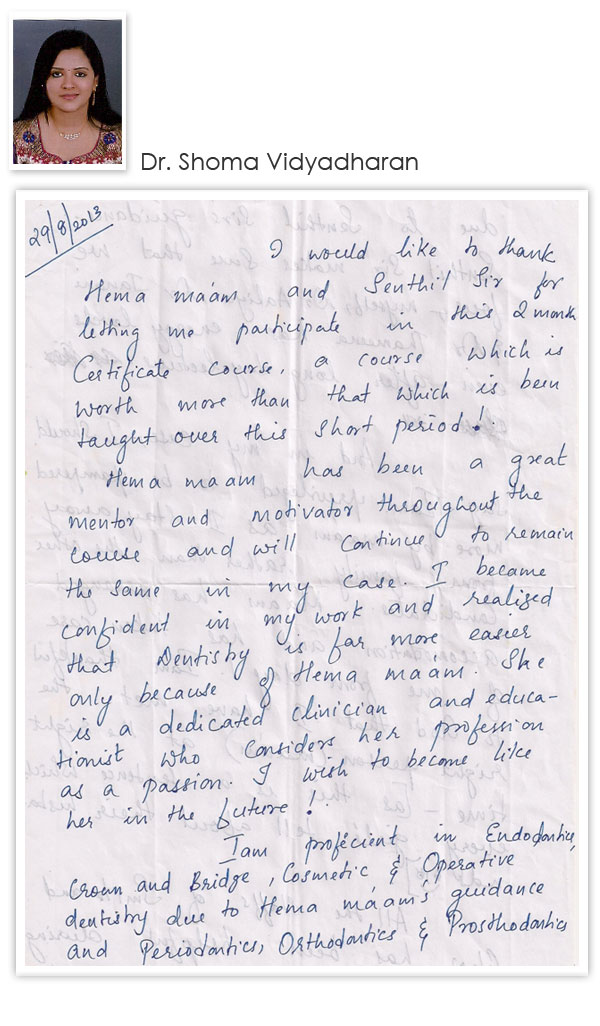 Dr. Shoma Vidyadharan
29/8/2013
I would like to thank
Hema ma'am and Senthil Sir for
letting me participate in this 2 month
Certificate course, a course which is
worth more than that which is been
taught over this short period!
Hema ma'am has been a great
mentor and motivator throughout the
course and will continue to remain
the same in my case. I became
confident in my work and realized
that Dentistry is far more easier
only because of Hema ma'am. She
is a dedicated clinician and educa-
tionist who considers her profession
as a passion. I wish to become like
her in the future!
I am proficient in Endodontics,
Crown and Bridge, Cosmetic & Operative
dentistry due to Hema ma'am's guidance
and Periodontics, Orthodontics & Prosthodontics